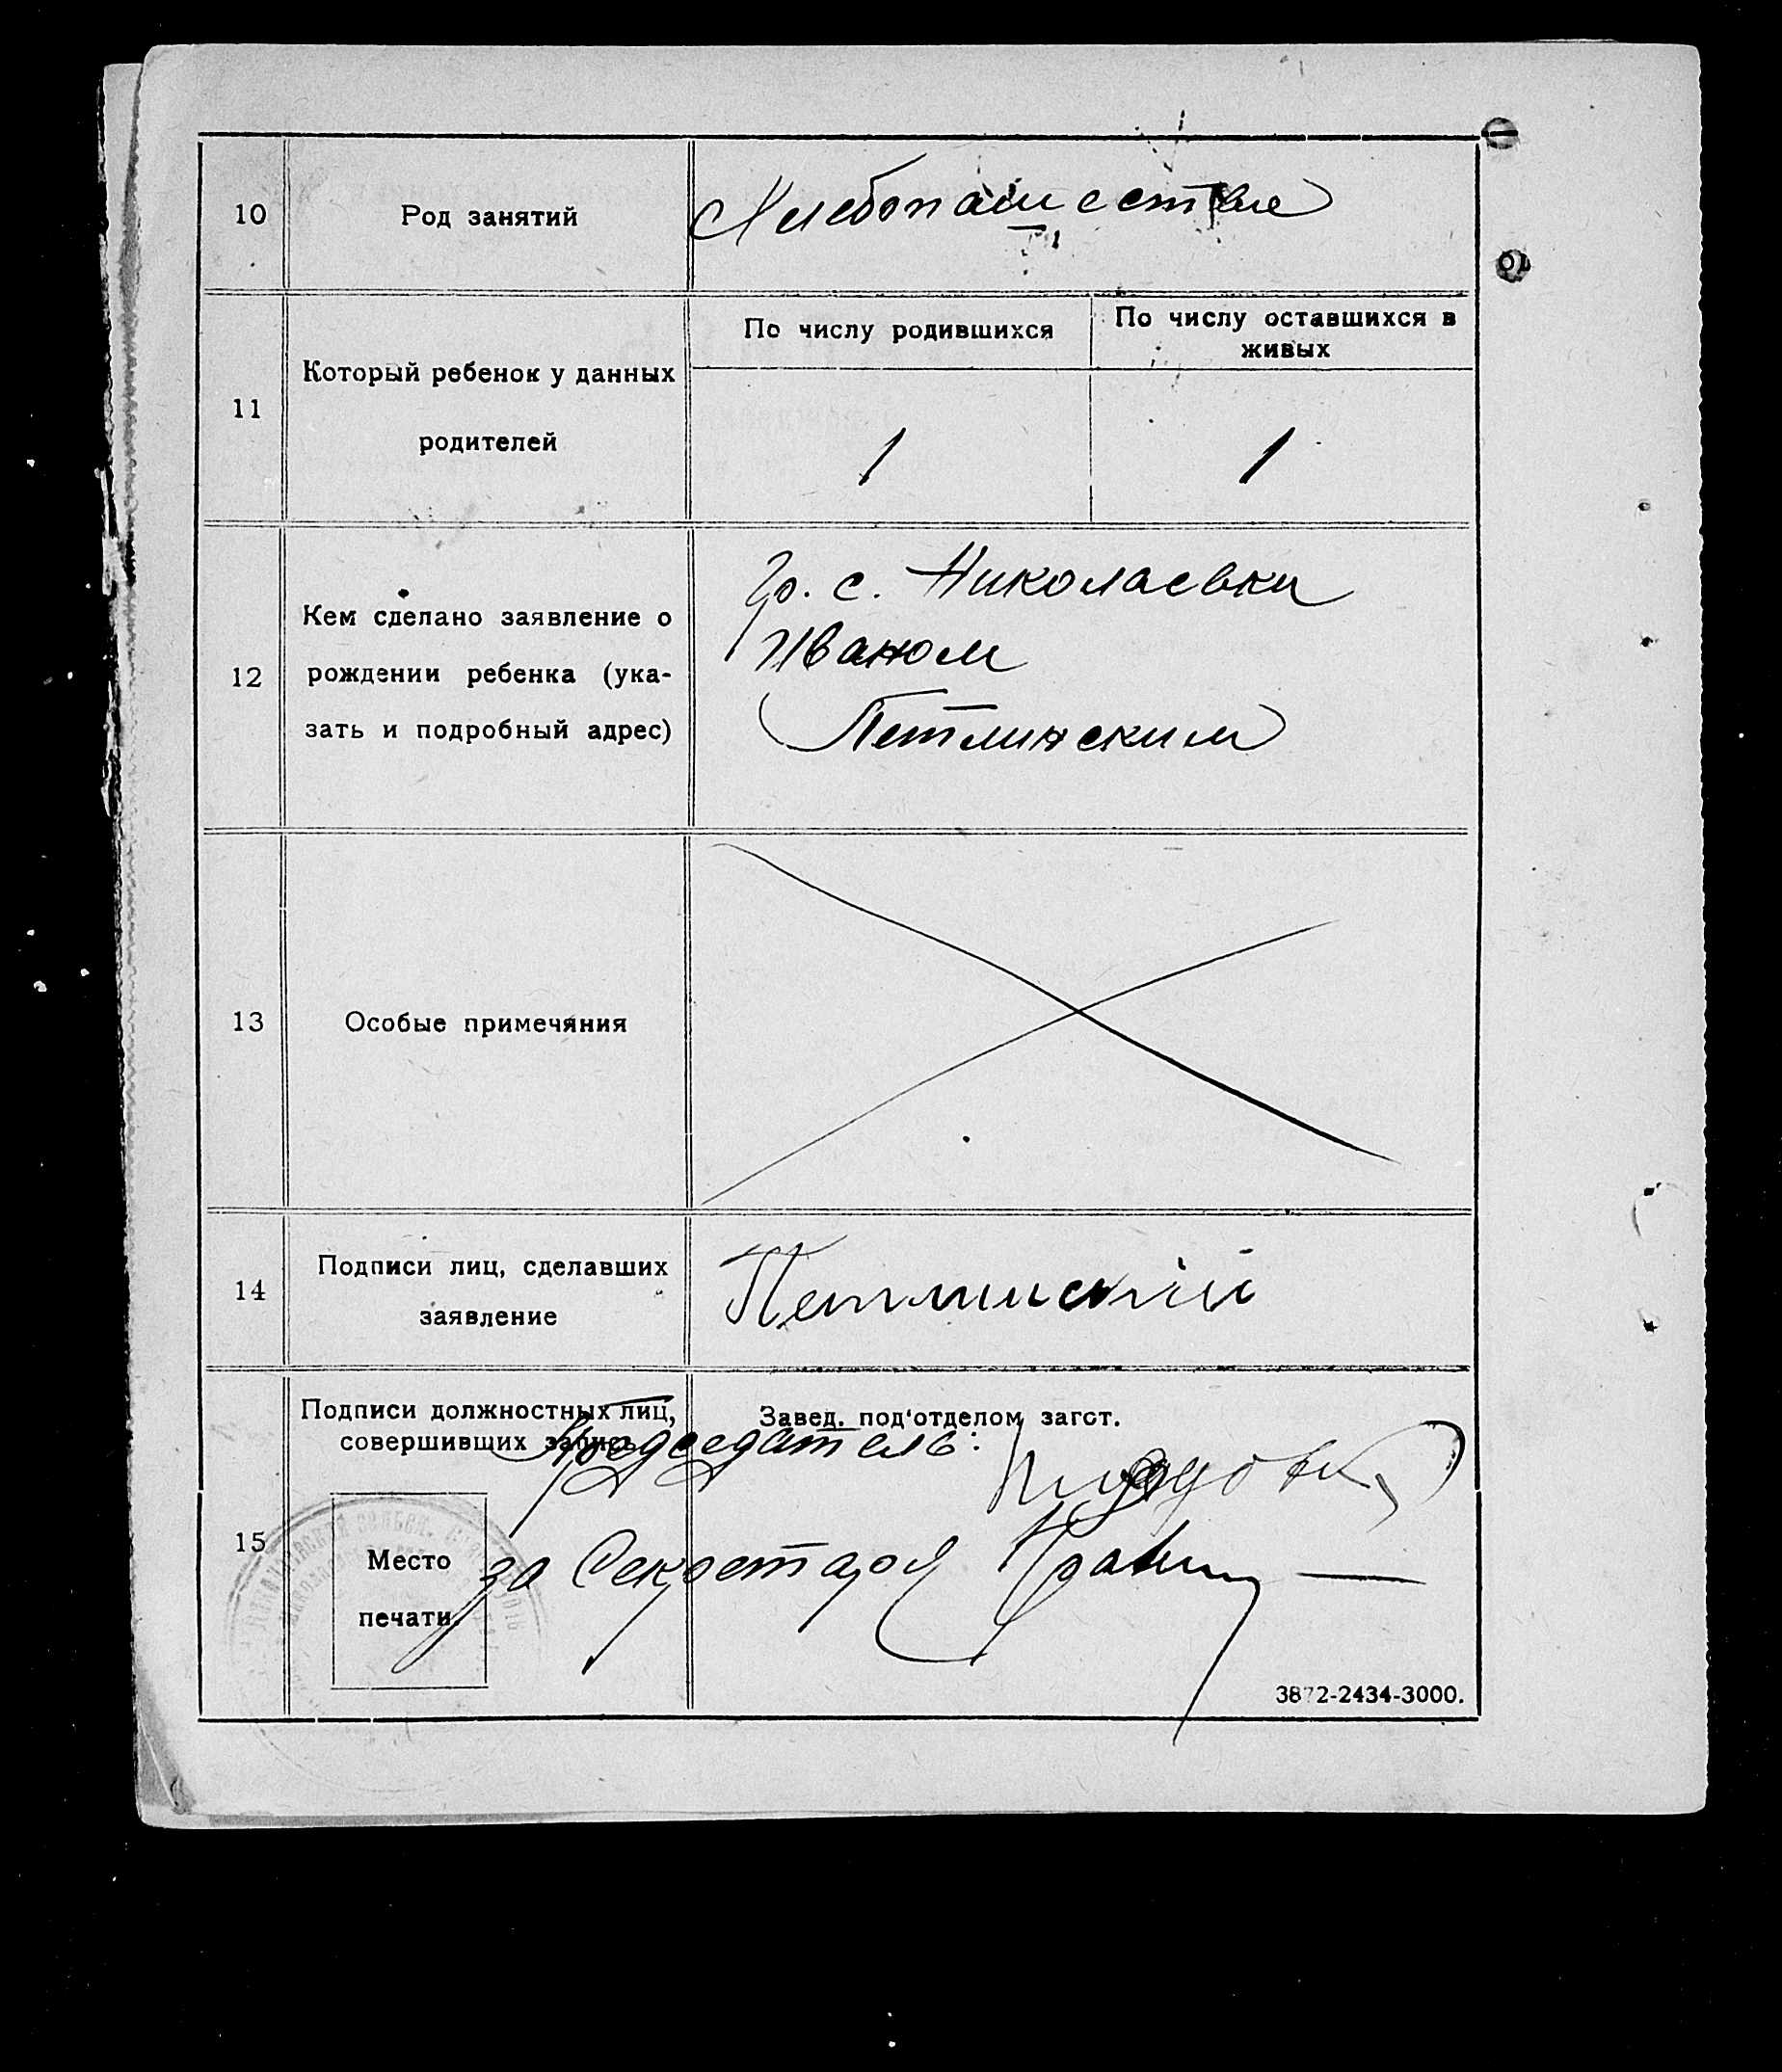 10
Род занятий
Хлебопашество
11
Который ребенок у данных
родителей
По числу родившихся
По числу оставшихся в
живых
1
1
12
Кем сделано заявление о
рождении ребенка (ука-
зать и подробный адрес)
Гр. с. Николаевки
Иваном
Петлинским
13
Особые примечания
14
Подписи лиц, сделавших
заявление
Петлинский
15
Подписи должностных лиц,
совершивших запись
Завед. под‘отделом загст.
Председатель:
за Секретаря
Место
печати.
3872-2434-3000.